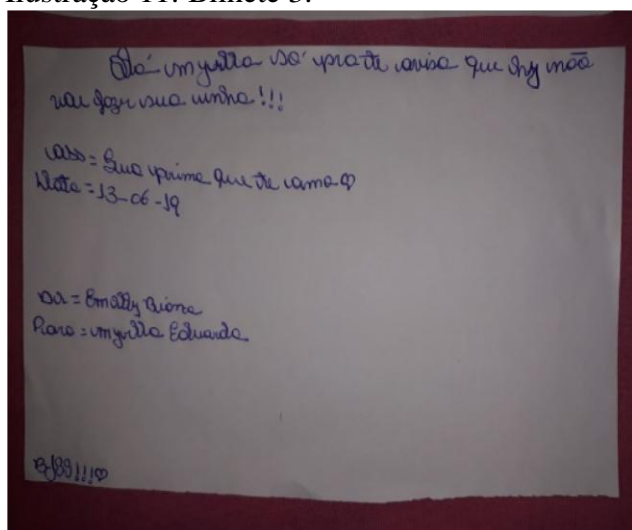 Ilustração 11: Bilhete 3.
Olá myrella só pra te avisa que hoje não
vai fazer sua unha!!!
ass = Sua prima que te ama♡
Data = 13-06-19
De = Emally Biona
Para = myrella Eduarda
BJSS!!!♡